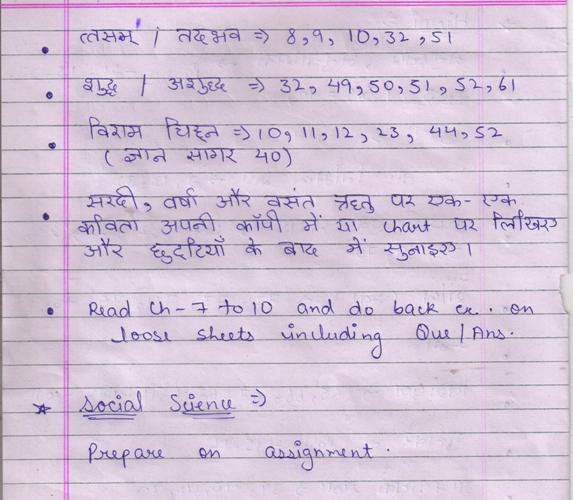 • त्तसम् / तदभव => 8,9, 10, 32, 51
• शुद्ध / अशुध्द => 32, 49, 50, 51, 52, 61
• विराम चिह्न => 10, 11, 12, 23, 44, 52
( ज्ञान सागर 40)
• सरदी, वर्षा और वसंत ऋतु पर एक-एक
कविता अपनी कॉपी में या Chart पर लिखिए
और छुट्टियाँ के बाद में सुनाइए।
• Read Ch-7 to 10 and do back ex. on
loose sheets including Que/Ans.
★ Social Science =>
Prepare on assignment.